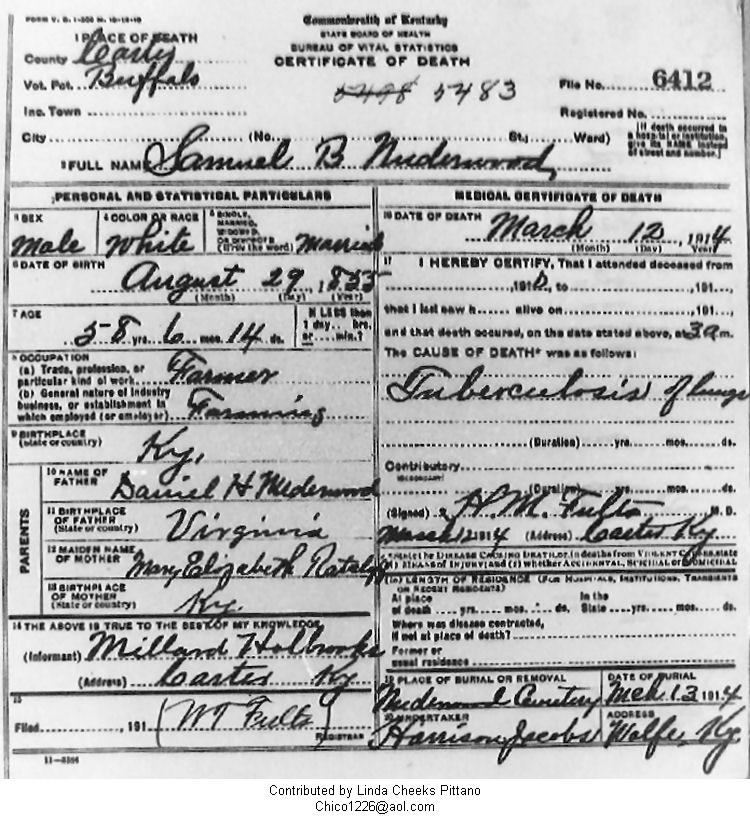 FORM V. S. 1-200 M. 10-18-10
Commonwealth of Kentucky
STATE BOARD OF HEALTH
BUREAU OF VITAL STATISTICS
CERTIFICATE OF DEATH
1 PLACE OF DEATH
County
Vot. Pct. Buffalo
Inc. Town
City (No. St.; Ward)
5498 5483
File No. 6412
Registered No.
[If death occurred in a hospital or institution, give its NAME instead of street and number.]
2 FULL NAME Samuel B
PERSONAL AND STATISTICAL PARTICULARS
3 SEX Male
4 COLOR OR RACE White
5 SINGLE, MARRIED, WIDOWED, OR DIVORCED (Write the word) Married
6 DATE OF BIRTH August 29, 1855
(Month) (Day) (Year)
7 AGE 58 yrs. 6 mos. 14 ds.
If LESS than 1 day .... hrs. or .... min.?
8 OCCUPATION
(a) Trade, profession, or particular kind of work Farmer
(b) General nature of industry business, or establishment in which employed (or employer) Farming
9 BIRTHPLACE (State or country) Ky.
PARENTS
10 NAME OF FATHER Daniel H
11 BIRTHPLACE OF FATHER (State or country) Virginia
12 MAIDEN NAME OF MOTHER Mary Elizabeth
13 BIRTHPLACE OF MOTHER (State or country) Ky.
14 THE ABOVE IS TRUE TO THE BEST OF MY KNOWLEDGE
(Informant) Millard Holbrooks
(Address) Carter Ky
15
Filed, 191 WT Fults
REGISTRAR
11-3184
MEDICAL CERTIFICATE OF DEATH
16 DATE OF DEATH March 12, 1914
(Month) (Day) Year
17 I HEREBY CERTIFY, That I attended deceased from
191, to, 191
that I last saw h alive on, 191
and that death occured, on the date stated above, at 3 a m.
The CAUSE OF DEATH* was as follows:
Tuberculosis of lungs
(Duration) yrs. mos. ds.
Contributory
(SECONDARY)
(Duration) yrs. mos. ds.
(Signed) M. Fults M. D.
March 12 1914 (Address) Carter Ky
*State the DISEASE CAUSING DEATH, or, in deaths from VIOLENT CAUSES, state (1) MEANS OF INJURY; and (2) whether ACCIDENTAL, SUICIDAL or HOMICIDAL
18 LENGTH OF RESIDENCE (FOR HOSPITALS, INSTITUTIONS, TRANSIENTS OR RECENT RESIDENTS)
At place of death yrs. mos. ds. In the State yrs. mos. ds.
Where was disease contracted, if not at place of death?
Former or usual residence
19 PLACE OF BURIAL OR REMOVAL Cemetery
DATE OF BURIAL Mch 13 1914
20 UNDERTAKER Harrison Jacobs
ADDRESS Wolfe, Ky.
Contributed by Linda Cheeks Pittano
Chico1226@aol.com